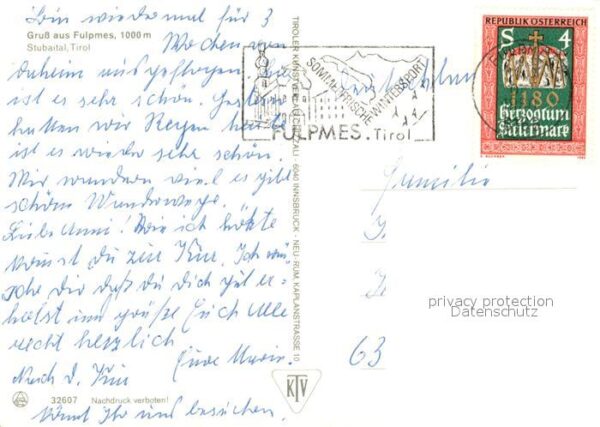 Bin wiedermal für 3
Gruß aus Fulpmes, 1000 m
Stubaital, Tirol
Wochen von
daheim ausgeflogen, hier
ist es sehr schön. Gestern
hatten wir Regen heute
ist es wieder sehr schön.
Wir wandern viel es gibt
schöne Wanderwege.
Liebe Anni! Wie ich hörte
kommst du zur Kur. Ich wün
sche dir daß du dich gut er-
holst und grüße Euch alle
recht herzlich
Eure Maria.
Nach d. Kur
32607 Nachdruck verboten!
könnt Ihr uns besuchen.
TIROLER KUNSTVERLAG CHIZZALI · 6040 INNSBRUCK - NEU-RUM, KAPLANSTRASSE 10
KTV
SOMMERFRISCHE WINTERSPORT
FULPMES. Tirol
REPUBLIK ÖSTERREICH
S 4
1180
Herzogtum
Steiermark
Familie
63
privacy protection
Datenschutz